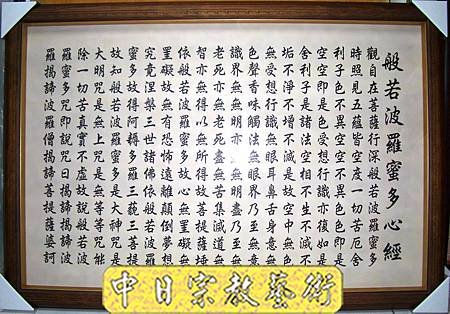 般若波羅蜜多心經
觀自在菩薩行深般若波羅蜜多
時照見五蘊皆空度一切苦厄舍
利子色不異空空不異色色即是
空空即是色受想行識亦復如是
舍利子是諸法空相不生不滅不
垢不淨不增不減是故空中無色
無受想行識無眼耳鼻舌身意無
色聲香味觸法無眼界乃至無意
識界無無明亦無無明盡乃至無
老死亦無老死盡無苦集滅道無
智亦無得以無所得故菩提薩埵
依般若波羅蜜多故心無罣礙無
罣礙故無有恐怖遠離顛倒夢想
究竟涅槃三世諸佛依般若波羅
蜜多故得阿耨多羅三藐三菩提
故知般若波羅蜜多是大神咒是
大明咒是無上咒是無等等咒能
除一切苦真實不虛故說般若波
羅蜜多咒即說咒曰揭諦揭諦波
羅揭諦波羅僧揭諦菩提薩婆訶
中日宗教藝術